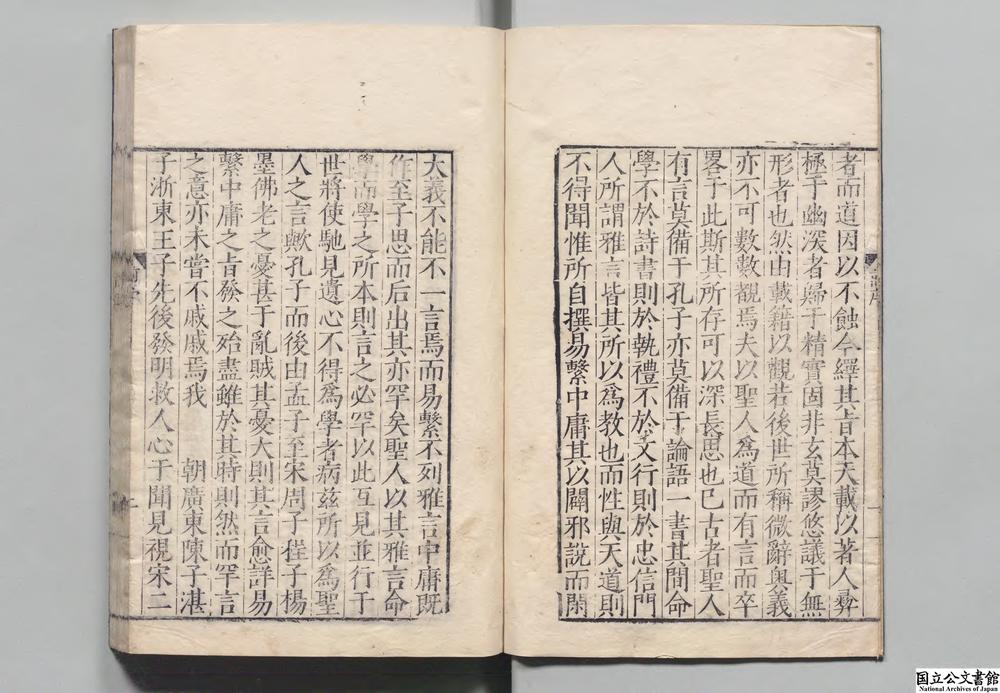 者而道因以不蝕今繹其旨本天載以著人彜
極于幽深者歸于精實因非玄莫謬悠議于無
形者也然由載籍以觀若後世所稱微辭奥義
亦不可數數觀焉夫以聖人爲道而有言而卒
畧于此斯其所存可以深長思也已古者聖人
有言莫備于孔子亦莫備于論語一書其間命
學不於詩書則於執禮不於文行則於忠信門
人所謂雅言皆其所以爲教也而性與天道則
不得聞惟所自撰易繫中庸其以闢邪說而閑
大義不能不一言焉而易繫不列雅言中庸既
作至子思而后出其亦罕矣聖人以其雅言命
學而學之所本則言之必罕以此互見並行于
世將使馳見遺心不得爲學者病兹所以爲聖
人之言歟孔子而後由孟子至宋周子程子楊
墨佛老之憂甚于亂賊其憂大則其言愈詳易
繫中庸之旨發之殆盡雖於其時則然而罕言
之意亦未嘗不戚戚焉我　朝廣東陳子湛
子浙東王子先後發明救人心于聞見視宋二
国立公文書館
National Archives of Japan